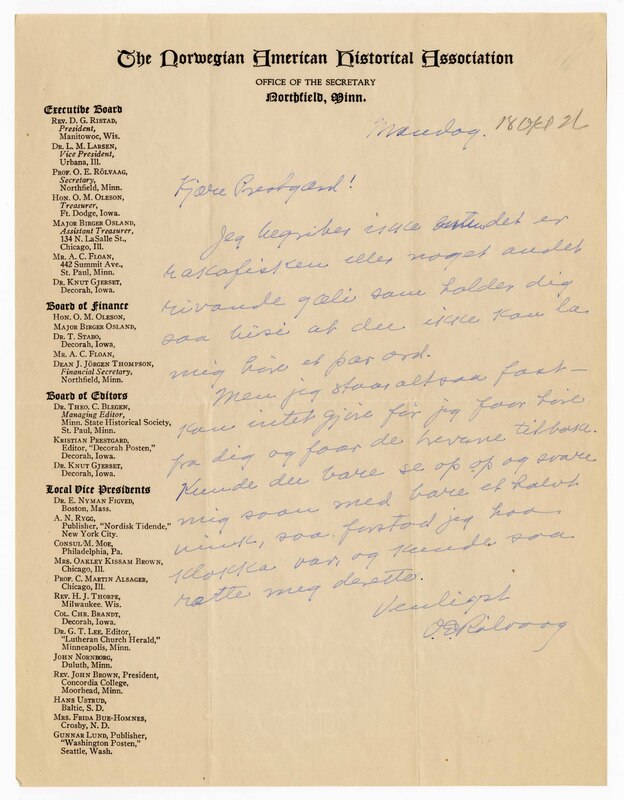 The Norwegian American Historical Association
OFFICE OF THE SECRETARY
Northfield, Minn.
Executive Board
REV. D. G. RISTAD,
President,
Manitowoc, Wis.
DR. L. M. LARSEN,
Vice President,
Urbana, Ill.
PROF. O. E. RÖLVAAG,
Secretary,
Northfield, Minn.
HON. O. M. OLESON,
Treasurer,
Ft. Dodge, Iowa.
MAJOR BIRGER OSLAND,
Assistant Treasurer,
134 N. LaSalle St.,
Chicago, Ill.
MR. A. C. FLOAN,
442 Summit Ave.,
St. Paul, Minn.
DR. KNUT GJERSET,
Decorah, Iowa.
Board of Finance
HON. O. M. OLESON,
MAJOR BIRGER OSLAND,
DR. T. STABO,
Decorah, Iowa,
MR. A. C. FLOAN,
DEAN J. JÖRGEN THOMPSON,
Financial Secretary,
Northfield, Minn.
Board of Editors
DR. THEO. C. BLEGEN,
Managing Editor,
Minn. State Historical Society,
St. Paul, Minn.
KRISTIAN PRESTGARD,
Editor, "Decorah Posten,"
Decorah, Iowa.
DR. KNUT GJERSET,
Decorah, Iowa.
Local Vice Presidents
DR. E. NYMAN FIGVED,
Boston, Mass.
A. N. RYGG,
Publisher, "Nordisk Tidende,"
New York City.
CONSUL M. MOE,
Philadelphia, Pa.
MRS. OAKLEY KISSAM BROWN,
Chicago, Ill.
PROF. C. MARTIN ALSAGER,
Chicago, Ill.
REV. H. J. THORPE,
Milwaukee. Wis.
COL. CHR. BRANDT,
Decorah, Iowa.
DR. G. T. LEE, Editor,
"Lutheran Church Herald,"
Minneapolis, Minn.
JOHN NORNBORG,
Duluth, Minn.
REV. JOHN BROWN, President,
Concordia College,
Moorhead, Minn.
HANS USTRUD,
Baltic, S. D.
MRS. FRIDA BUE-HOMNES,
Crosby, N. D.
GUNNAR LUND, Publisher,
"Washington Posten,"
Seattle, Wash.
Mandag. 18
Kjære Prestgard!
Jeg begriber ikke det er
rakafisken eller noget andet
rivande gæli som holder dig
saa at du ikke kan la
mig höre et par ord.
Men jeg staar altsaa fast —
kan intet gjöre för jeg faar höre
fra dig og faar de tilbake.
Kunde du bare se op op og svare
mig saan med bare et halvt
vink, saa forstod jeg hva
klokka var, og kunde saa
rette meg derette.
Venligst
O.E. Rölvaag